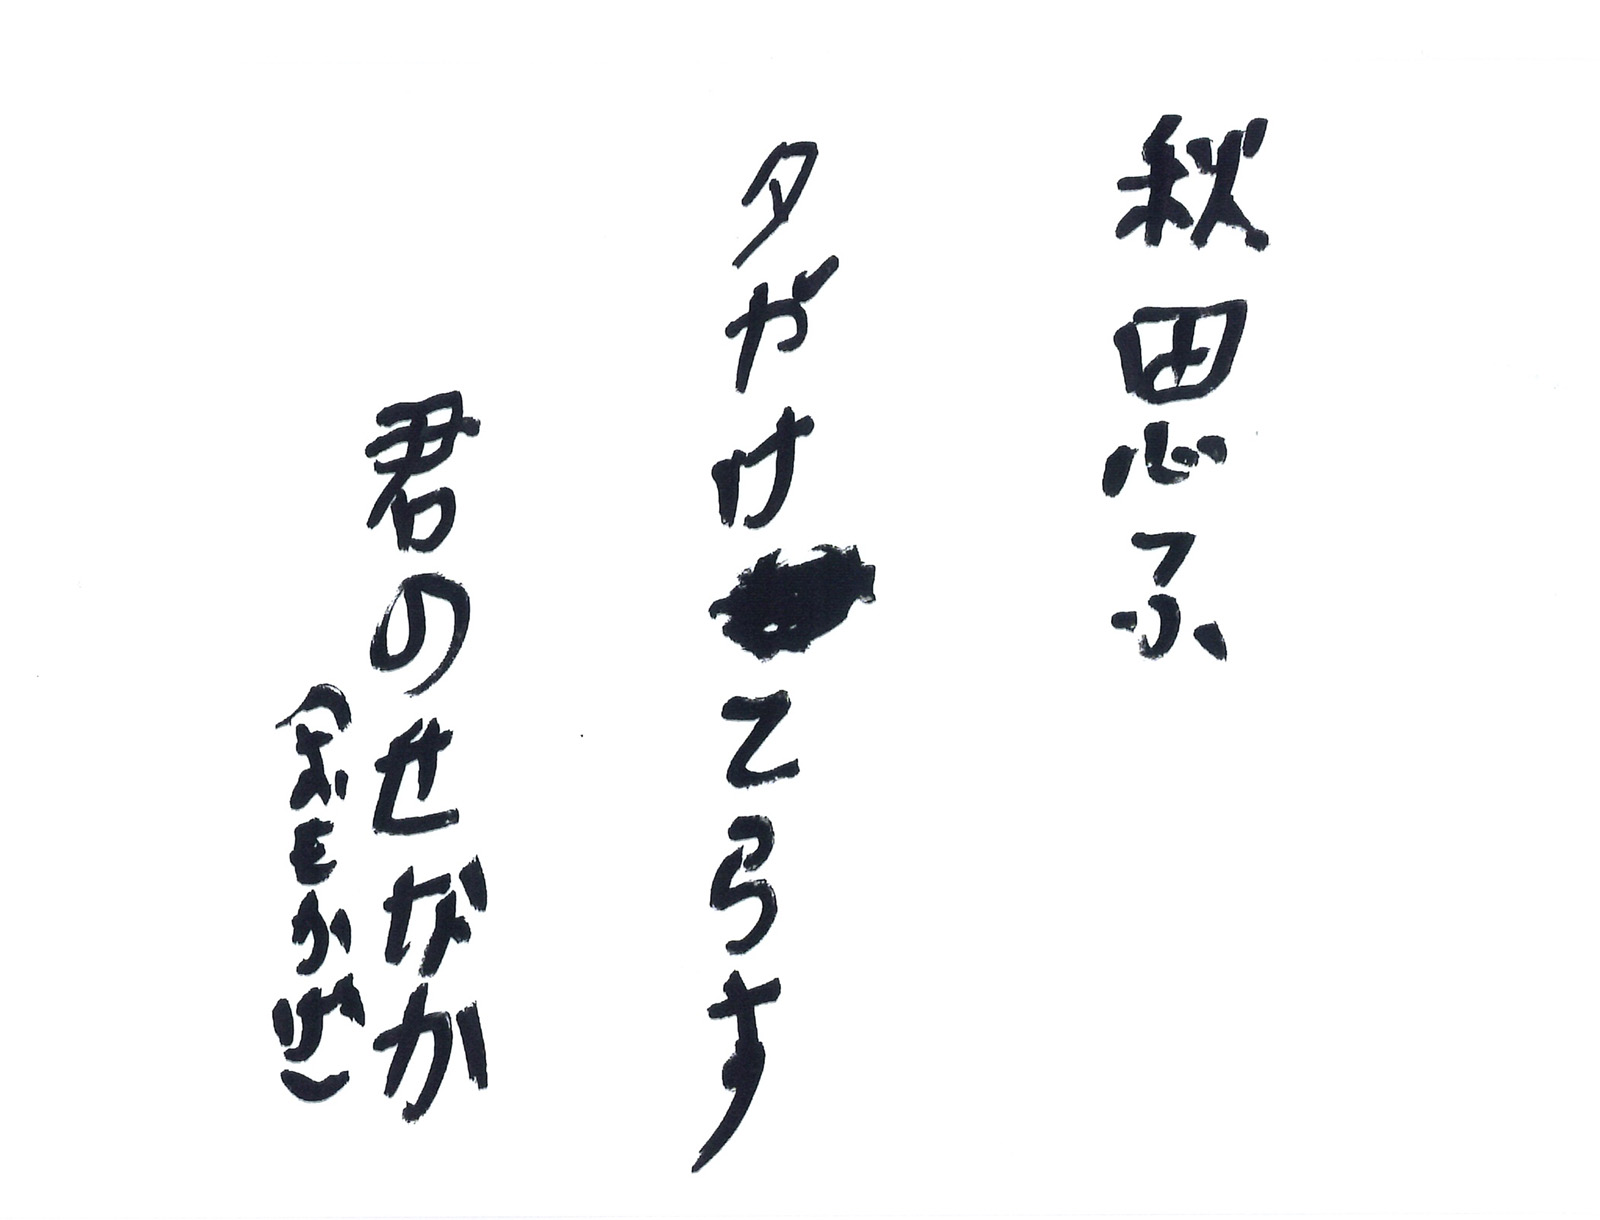 秋思ふ
夕かけてらす
君のせなか
（おもかげ）